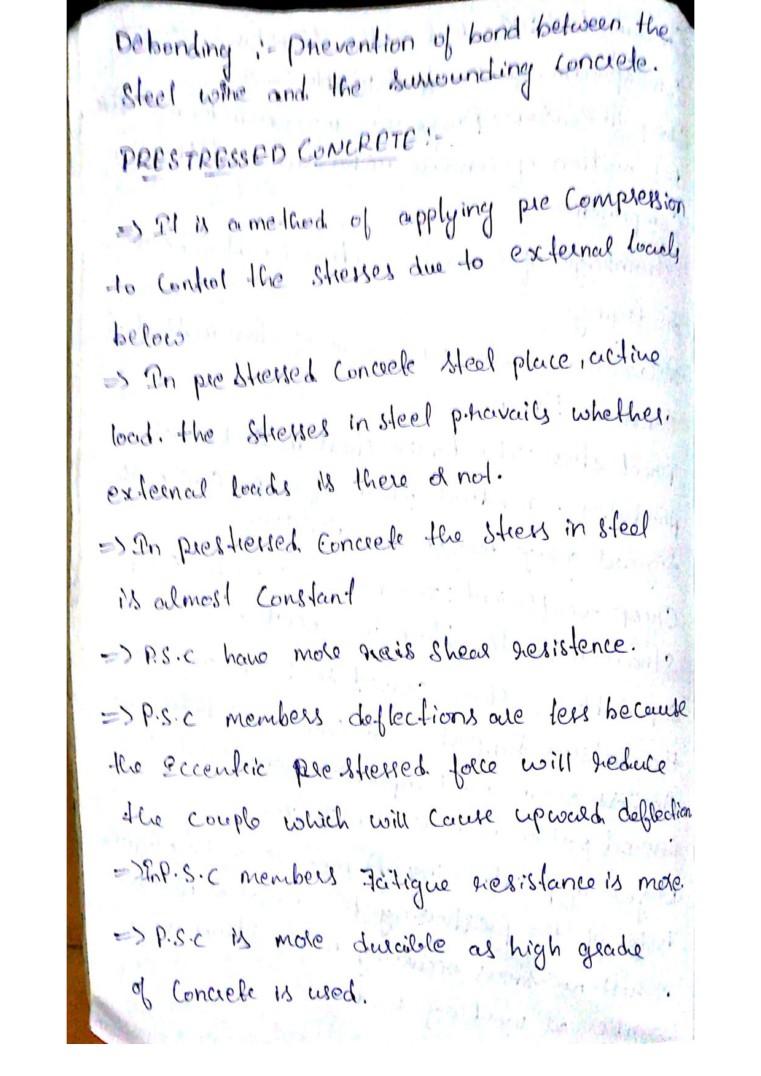 Debonding :- prevention of bond between the
steel wire and the surrounding concrete.
PRESTRESSED CONCRETE :-
=> It is a method of applying pre compression
to control the stresses due to external loads
below
=> In pre stressed concrete steel place, active
load. the stresses in steel prevails whether
external loads is there or not.
=> In prestressed concrete the stress in steel
is almost constant
=> P.S.C have more shear resistence.
=> P.S.C members deflections are less because
the eccentric pre stressed force will reduce
the couple which will cause upward deflection
=> in P.S.C members Fatigue resistance is more.
=> P.S.C is more durable as high grade
of concrete is used.